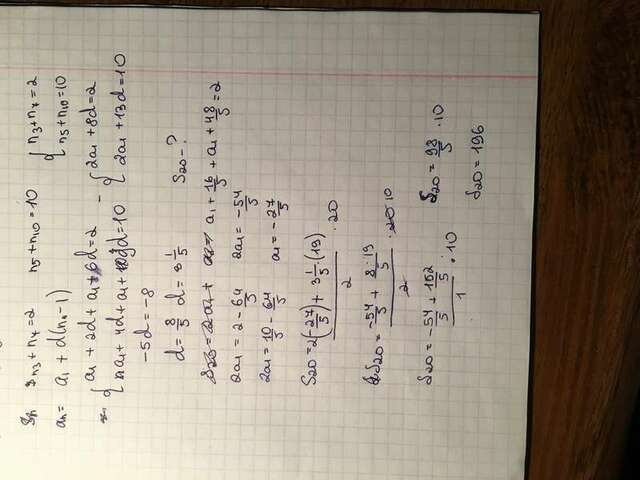 n₃+n₇=2 n₅+n₁₀=10 { n₃+n₇=2
n₅+n₁₀=10
aₙ= a₁ + d(n-1)
{ a₁ + 2d + a₁ + 6d = 2 - { 2a₁ + 8d = 2
a₁ + 4d + a₁ + 9d = 10 2a₁ + 13d = 10
-5d = -8
d = 8/5 d = 1/5 S₂₀ - ?
a₁ + 16/5 + a₁ + 48/5 = 2
2a₁ = 2 - 64/5 2a₁ = -54/5
2a₁ = 10/5 - 64/5 a₁ = -27/5
S₂₀ = 2(-27/5) + 3 1/5 · (19) / 2 · 20
S₂₀ = -54/5 + 8·19/5 / 2 · 20 10
S₂₀ = -54/5 + 152/5 / 1 · 10 S₂₀ = 98/5 · 10
S₂₀ = 196